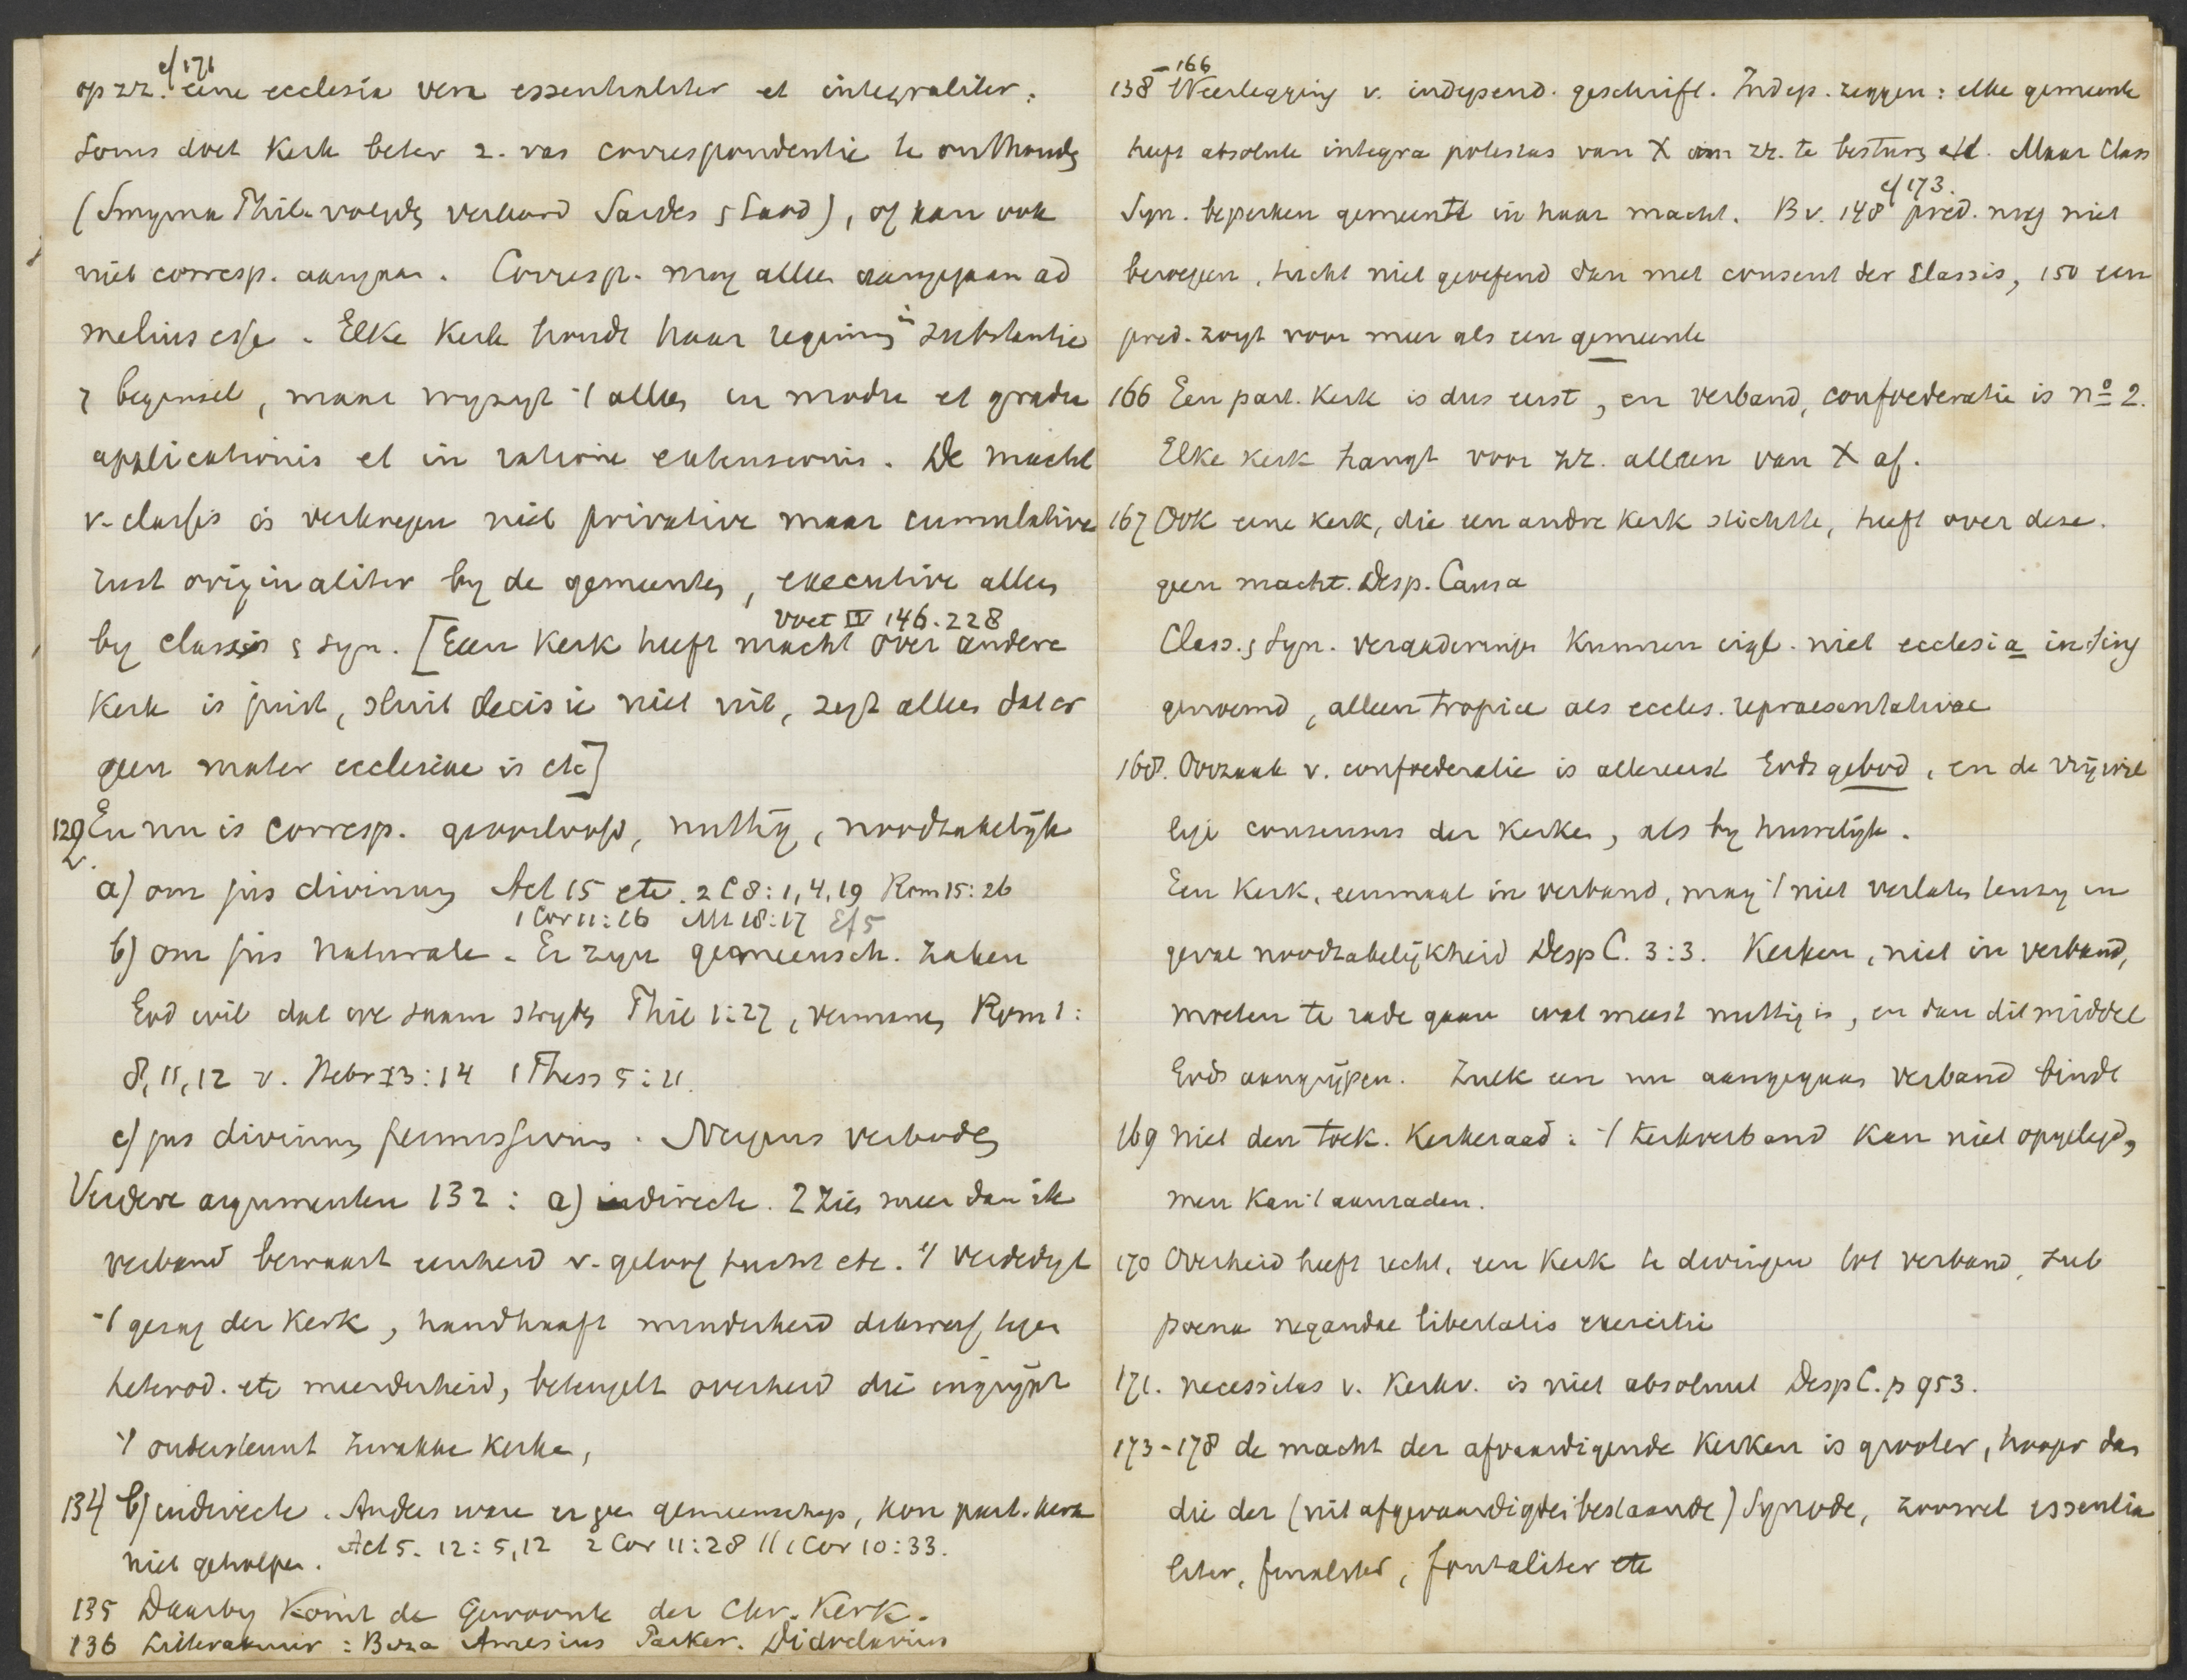 cf 171
op zz. eene ecclesia vera essentialiter et integraliter.
Soms doet Kerk beter z. van correspondentie te onthoude
(Smyrna Phila verbond Sardes Laod), of kan ook
niet corresp. aangaan. Corresp. mag alleen aangegaan ad
melius esse. Elke Kerk houdt haar regimen in substantie
beginsel, maar wyzigt 't alleen in modo et gradu
applicationis et in ratione extensionis. De macht
v. classis is verkregen niet privative maar cumulative
rust originaliter by de gemeente, executive alleen
Voet IV 146.228
by classis & syn. [Geen Kerk heeft macht over andere
Kerk is juist, sluit decisie niet uit, zegt alleen dat er
geen mater ecclesiae is etc]
129 En nu is corresp. geoorloofd, nuttig, noodzakelijk
a) om jus divinum Act 15 etc. 2 C 8:1,4,19 Rom 15:26
1 Cor 11:16 Mt 18:17 Ef 5
b) om jus naturale. Er zyn gemeensch. zaken
God wil dat we saam stryde Phil 1:27, vermane Rom 1:
8,11,12 v. Hebr 13:14 1 Thess 5:11.
c) jus divinum permissivum. Nergens verbode
Verdere argumenten 132: a) directe. 2 zien meer dan ik
verband bewaart eenheid v. geloof tucht etc. 't verdedigt
't gezag der Kerk, handhaaft minderheid tegen
heterod. etc meerderheid, beteugelt overheid die ingrijpt
't ondersteunt zwakke Kerke,
134 b) indirecte. Anders ware er geen gemeenschap, kon part. kerk
niet geholpen. Act 5. 12:5,12 2 Cor 11:28 11 1 Cor 10:33.
135 Daarby komt de Gewoonte der Chr. Kerk.
136 Litteratuur: Beza Amesius Parker. Didoclavius
138-166 Weerlegging v. independ. geschrift. Indep. zeggen: elke gemeente
heeft absolute integra potestas van X om zz. te besturen etc. Maar Class
Syn. beperken gemeente in haar macht. Bv. 148 cf 173. pred. mag niet
beroepen, tucht niet geoefend dan met consent der Classis, 150 een
pred. zorgt voor meer als een gemeente
166 Een part. Kerk is dus eerst, en verband, confoederatie is no 2.
Elke kerk hangt voor zz. alleen van X af.
167 Ook eene kerk, die een andre kerk stichtte, heeft over deze.
geen macht. Desp. Causa
Class. & Syn. vergaderingen kunnen eigl. niet ecclesia in sing
genoemd, alleen tropice als eccles. repraesentativae
168. Oorzaak v. confoederatie is allereerst Gods gebod, en de vrijwil
lige consensus der Kerken, als by huwelijk.
Een Kerk, eenmaal in verband, mag 't niet verlate tenzy in
geval noodzakelijkheid Desp C. 3:3. Kerken, niet in verband,
moeten te rade gaan wat meest nuttig is, en dan dit middel
Gods aangrijpen. Zulk een nu aangegaan verband bindt
169 niet den toek. Kerkeraad: 't kerkverband kan niet opgelegd,
men kan 't aanraden.
170 Overheid heeft recht, een Kerk te dwingen tot verband, sub
poena negandae libertatis exercitii
171. necessitas v. Kerkv. is niet absoluut Desp C. p 953.
173-178 de macht der afvaardigende Kerken is grooter, hooger dan
die der (uit afgevaardigden bestaande) Synode, zoowel essentia
liter, finaliter, fontaliter etc